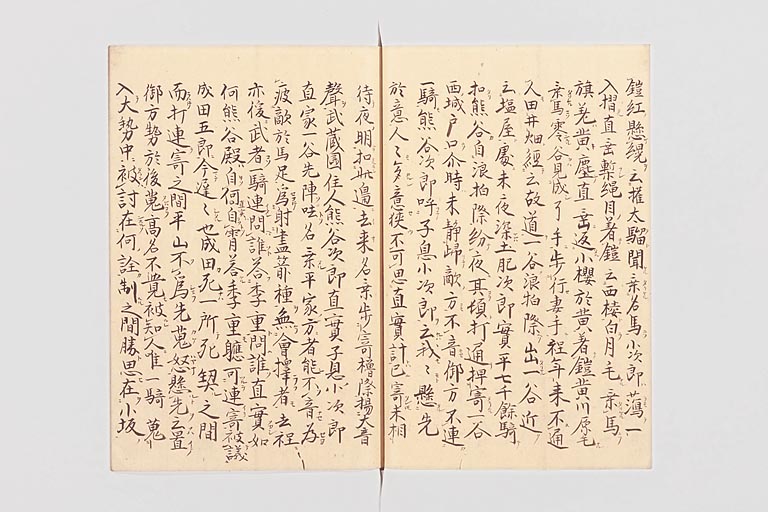 鎧紅懸縨云權太騮聞乗名馬小次郎薄一
入摺直垂漸縄目著鎧云西楼白月毛乗馬
旗差黄塵直垂返小櫻於黄著鎧黄川原毛
乗馬零谷見成了手歩行妻手程年来不通
云田井畑經云故道一谷浪拍際出一谷近
云塩屋處未夜深土肥次郎實平七千餘騎
扣熊谷自浪拍際紛夜其頃打通押寄一谷
西城戸口尒時未静歸敵方不音御方不連
一騎熊谷次郎呼子息小次郎云我懸先
於意人多意俠不可思直實計已寄未相
待夜明扣此邉去来名乗歩寄櫓際揚大音
聲武蔵國住人熊谷次郎直實子息小次郎
直家一谷先陣呿名乗平家方者能不音為
疲敵於馬足為射盡箭種無會擇者去程
亦後武者一騎連問誰答季重問誰直實如
何熊谷殿自何自宵答季重軈可連寄被議
成田五郎今遅〻也成田死一所死契之間
而打連寄之間平山不為先蒐怒懸先云置
御方勢於後蒐高名不覚被知人唯一騎蒐
入大勢中被討在何詮制之間勝思在小坂